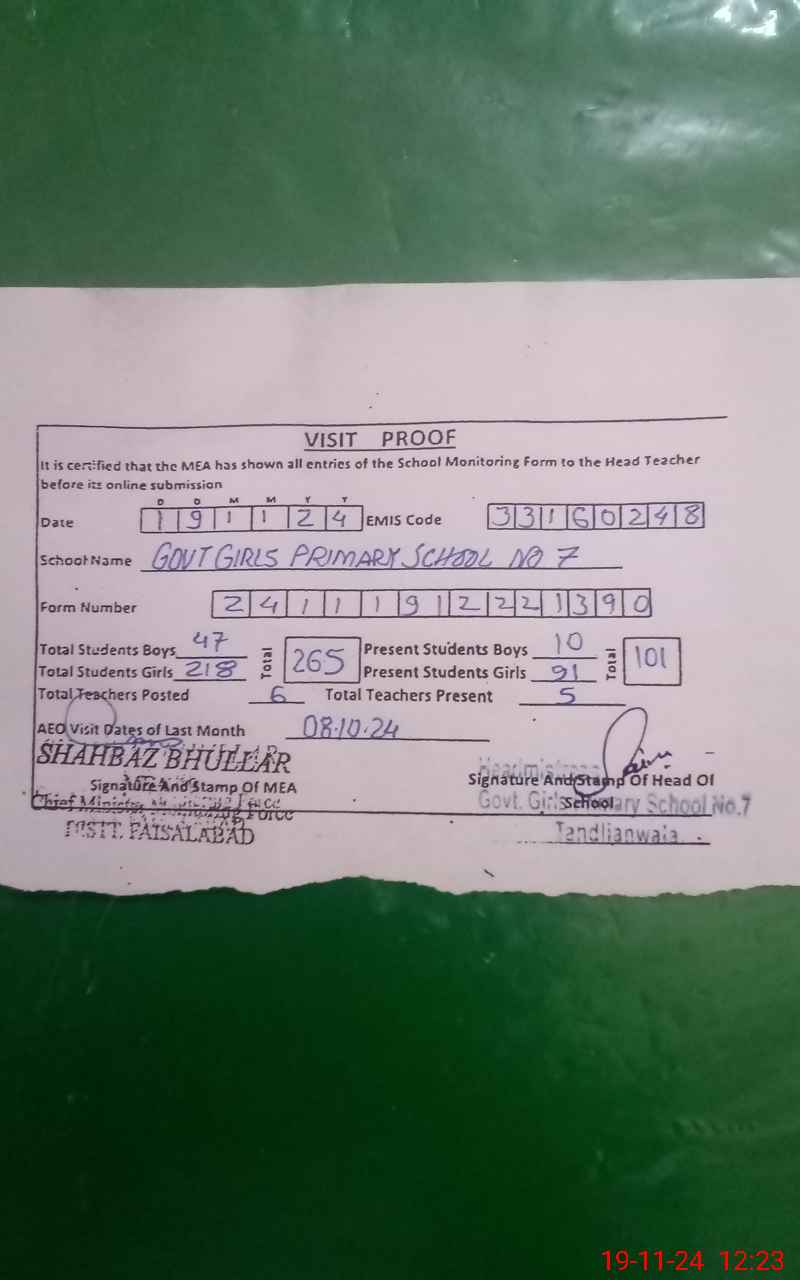 VISIT PROOF
It is certified that the MEA has shown all entries of the School Monitoring Form to the Head Teacher
before its online submission
D D M M Y Y
Date 1 9 1 1 2 4 EMIS Code 3 3 1 6 0 2 4 8
School Name GOVT GIRLS PRIMARY SCHOOL NO 7
Form Number 2 4 1 1 1 9 1 2 2 2 1 3 9 0
Total Students Boys 47 Total 265 Present Students Boys 10 Total 101
Total Students Girls 218 Present Students Girls 91
Total Teachers Posted 6 Total Teachers Present 5
AEO Visit Dates of Last Month 08.10.24
SHAHBAZ BHULLAR
Signature And Stamp Of MEA Signature And Stamp Of Head Of
School
Chief Force
DISTT. FAISALABAD
Headmistress
Govt. Girls School No.7
Tandlianwala
19-11-24 12:23